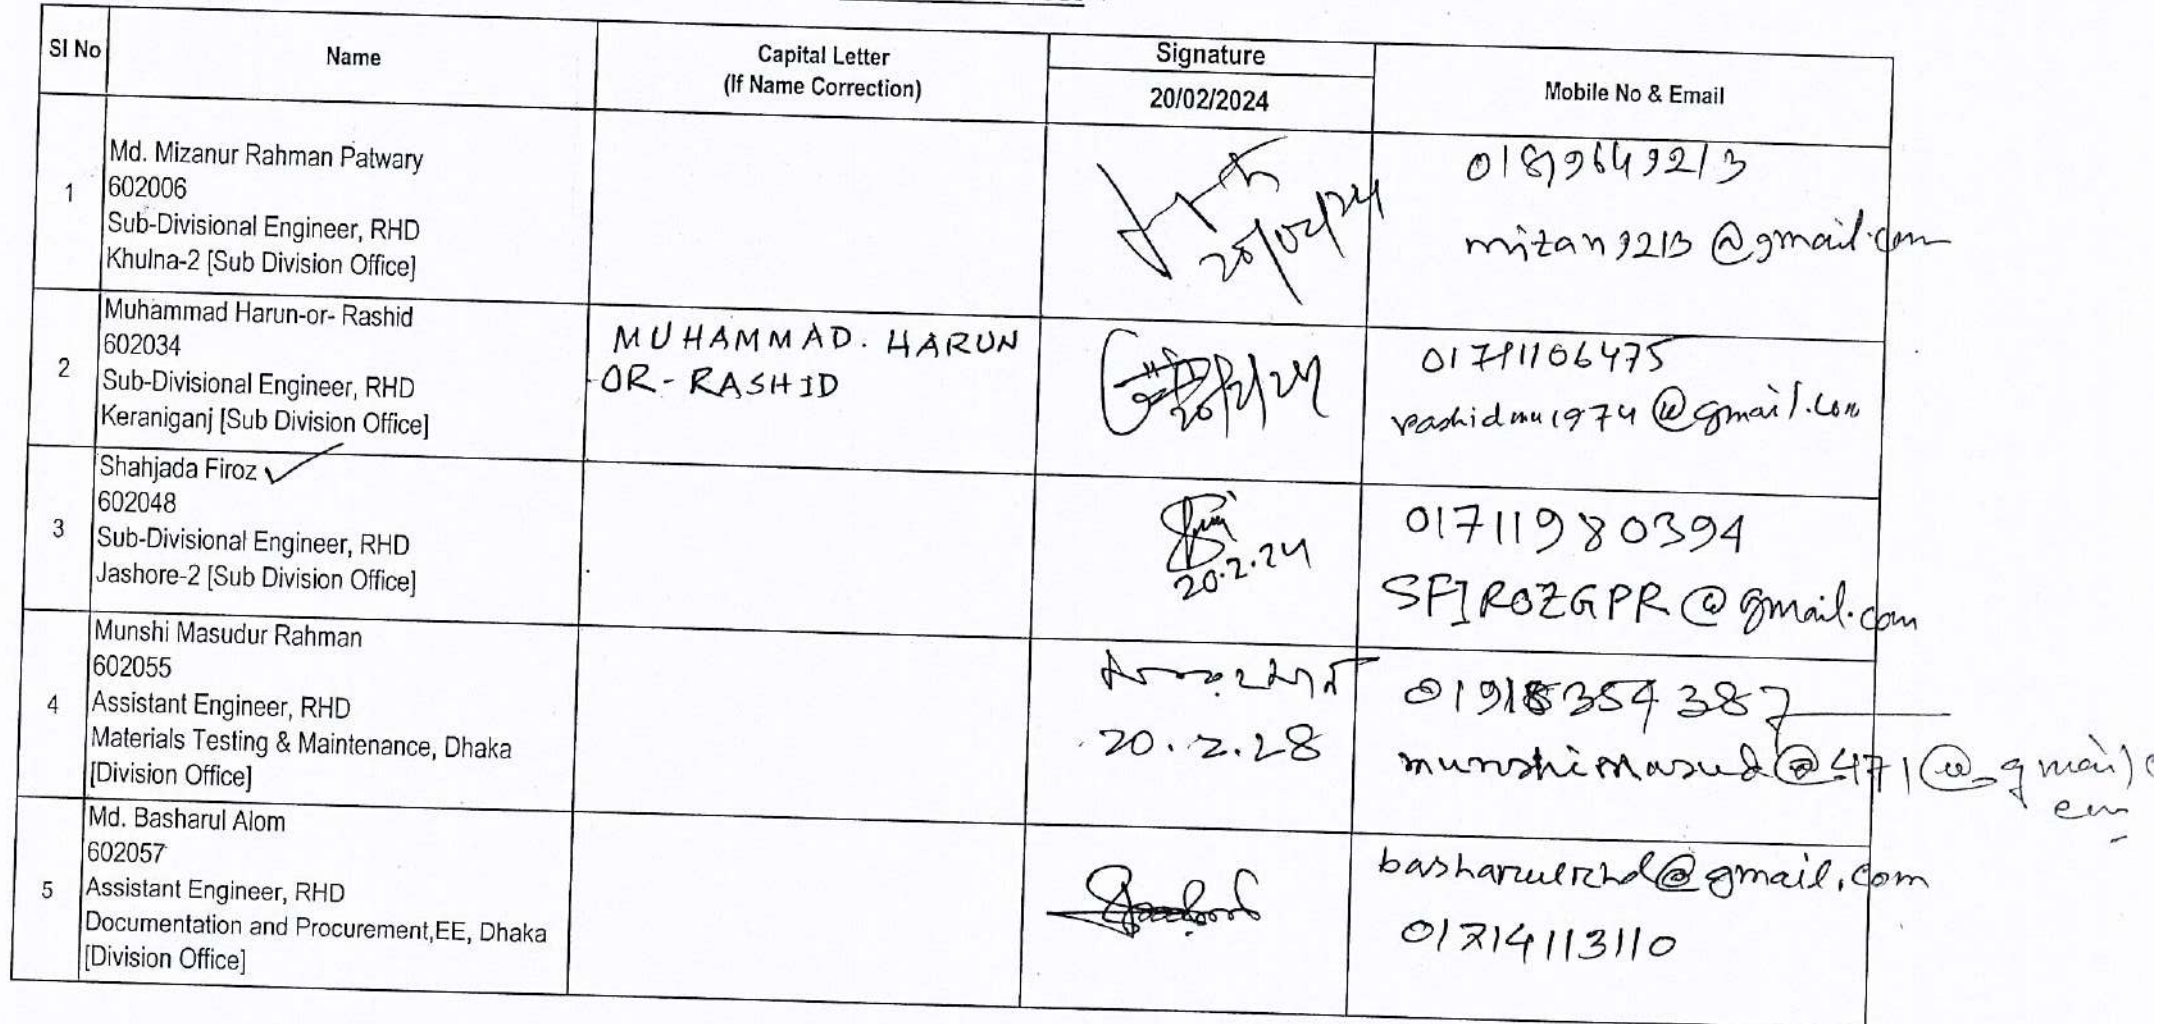 SI No
Name
Capital Letter
(If Name Correction)
Signature
20/02/2024
Mobile No & Email
1
Md. Mizanur Rahman Patwary
602006
Sub-Divisional Engineer, RHD
Khulna-2 [Sub Division Office]
20/02/24
01819649213
mizan9213@gmail.com
2
Muhammad Harun-or- Rashid
602034
Sub-Divisional Engineer, RHD
Keraniganj [Sub Division Office]
MUHAMMAD. HARUN
OR-RASHID
20/2/24
rashidmu1974@gmail.com
3
Shahjada Firoz
602048
Sub-Divisional Engineer, RHD
Jashore-2 [Sub Division Office]
20.2.24
01711980394
SFIROZGPR@gmail.com
4
Munshi Masudur Rahman
602055
Assistant Engineer, RHD
Materials Testing & Maintenance, Dhaka
[Division Office]
20.2.28
01918354387
5
Md. Basharul Alom
602057
Assistant Engineer, RHD
Documentation and Procurement,EE, Dhaka
[Division Office]
basharulrhd@gmail.com
01714113110